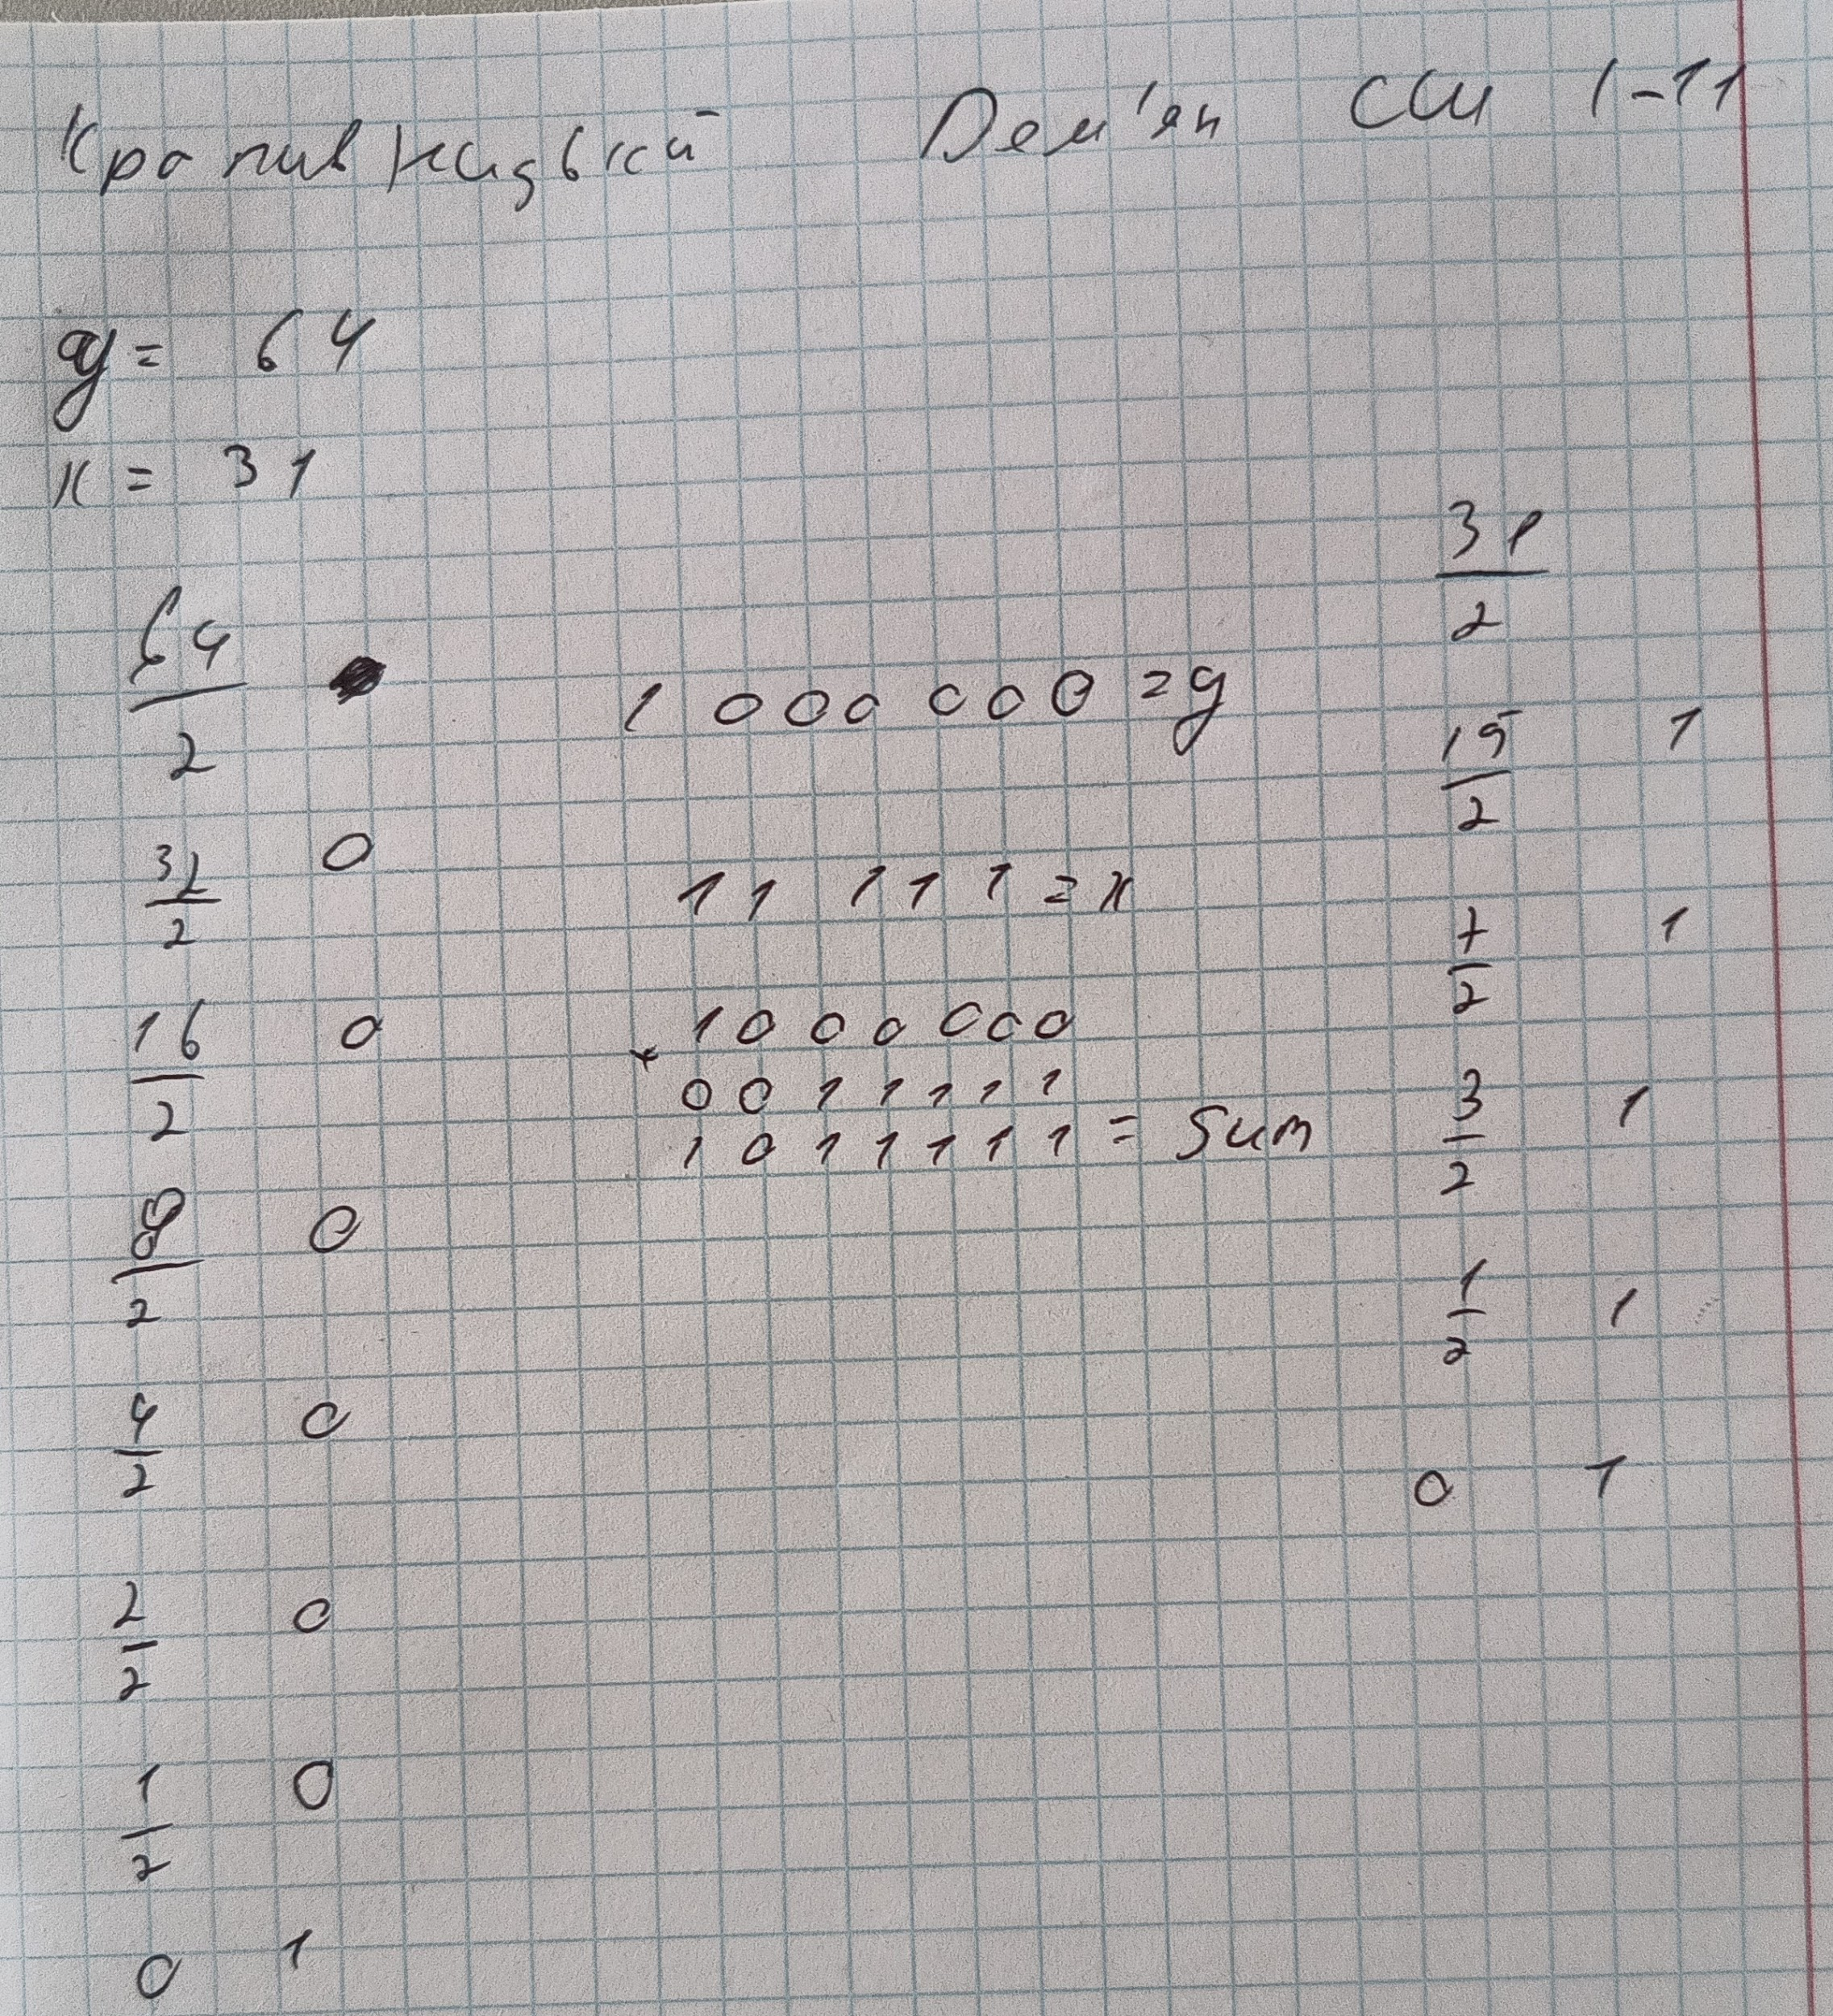 Кропивницький Дем'ян ССШ 1-11
y = 64
x = 31
64
2
32 0
2
16 0
2
8 0
2
4 0
2
2 0
2
1 0
2
0 1
1 000 000 = y
11 111 = x
+ 1000000
0011111
1011111 = Sum
31
2
15 1
2
7 1
2
3 1
2
1 1
2
0 1